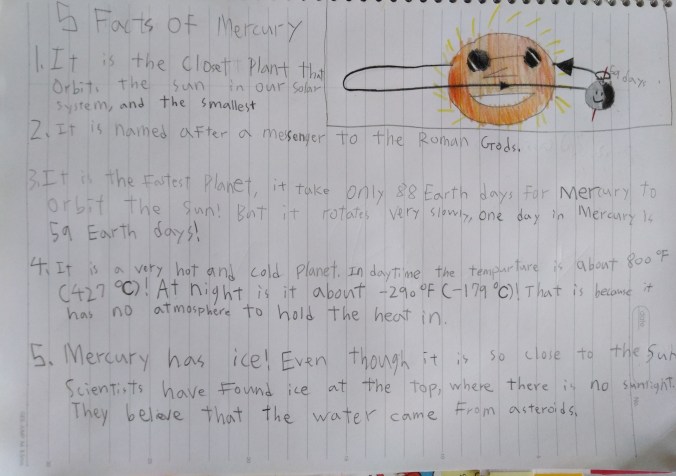 5 Facts of Mercury
1. It is the Closet Plant that
Orbits the sun in our solar
System, and the smallest
59 days
2. It is named after a mesenger to the Roman Gods.
3. It is the Fastest Planet, it take only 88 Earth days for Mercury to
orbit the sun! But it rotates very slowly, one day in Mercury is
59 Earth days!
4. It is a very hot and cold Planet. In daytime the tempurture is about 800°F
(427°C)! At night is it about -290°F (-179°C)! That is because it
has no atmosphere to hold the heat in.
5. Mercury has ice! Even though it is so close to the Sun
Scientists have found ice at the top, where there is no sunlight.
They beleve that the water came from asteroids.